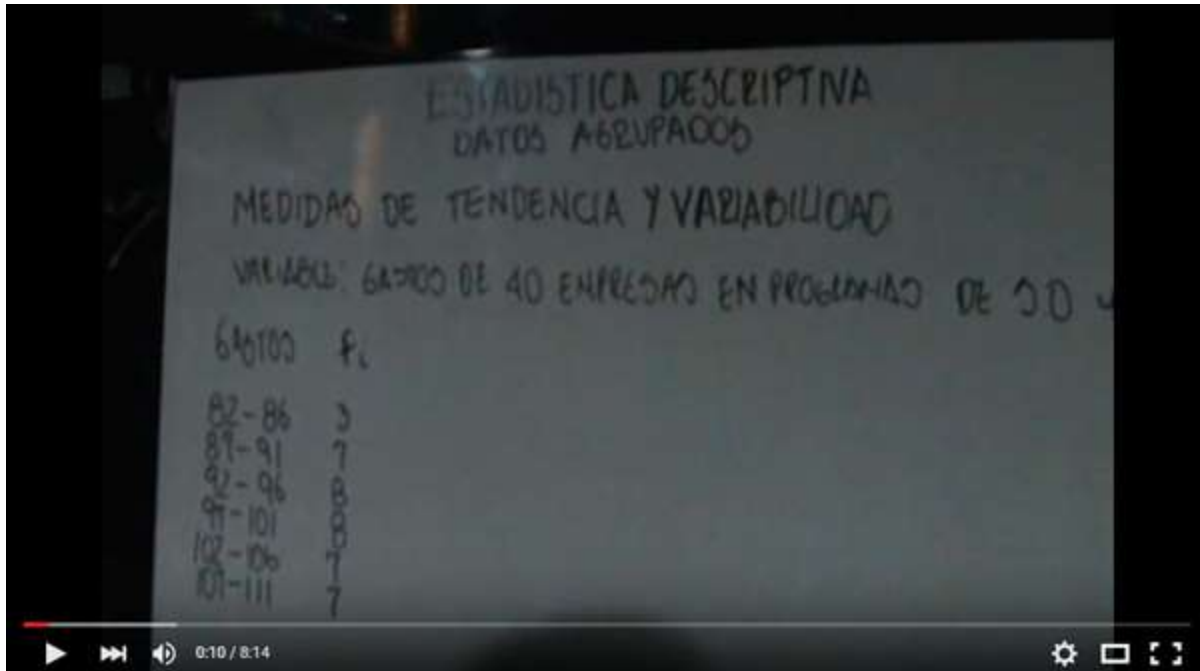 ESTADISTICA DESCRIPTIVA
DATOS AGRUPADOS
MEDIDAS DE TENDENCIA Y VARIABILIDAD
VARIABLE: GASTOS DE 40 EMPRESAS EN PROGRAMAS DE SO
GASTOS fi
82-86 3
87-91 7
92-96 8
97-101 8
102-106 7
107-111 7
0:10 / 8:14